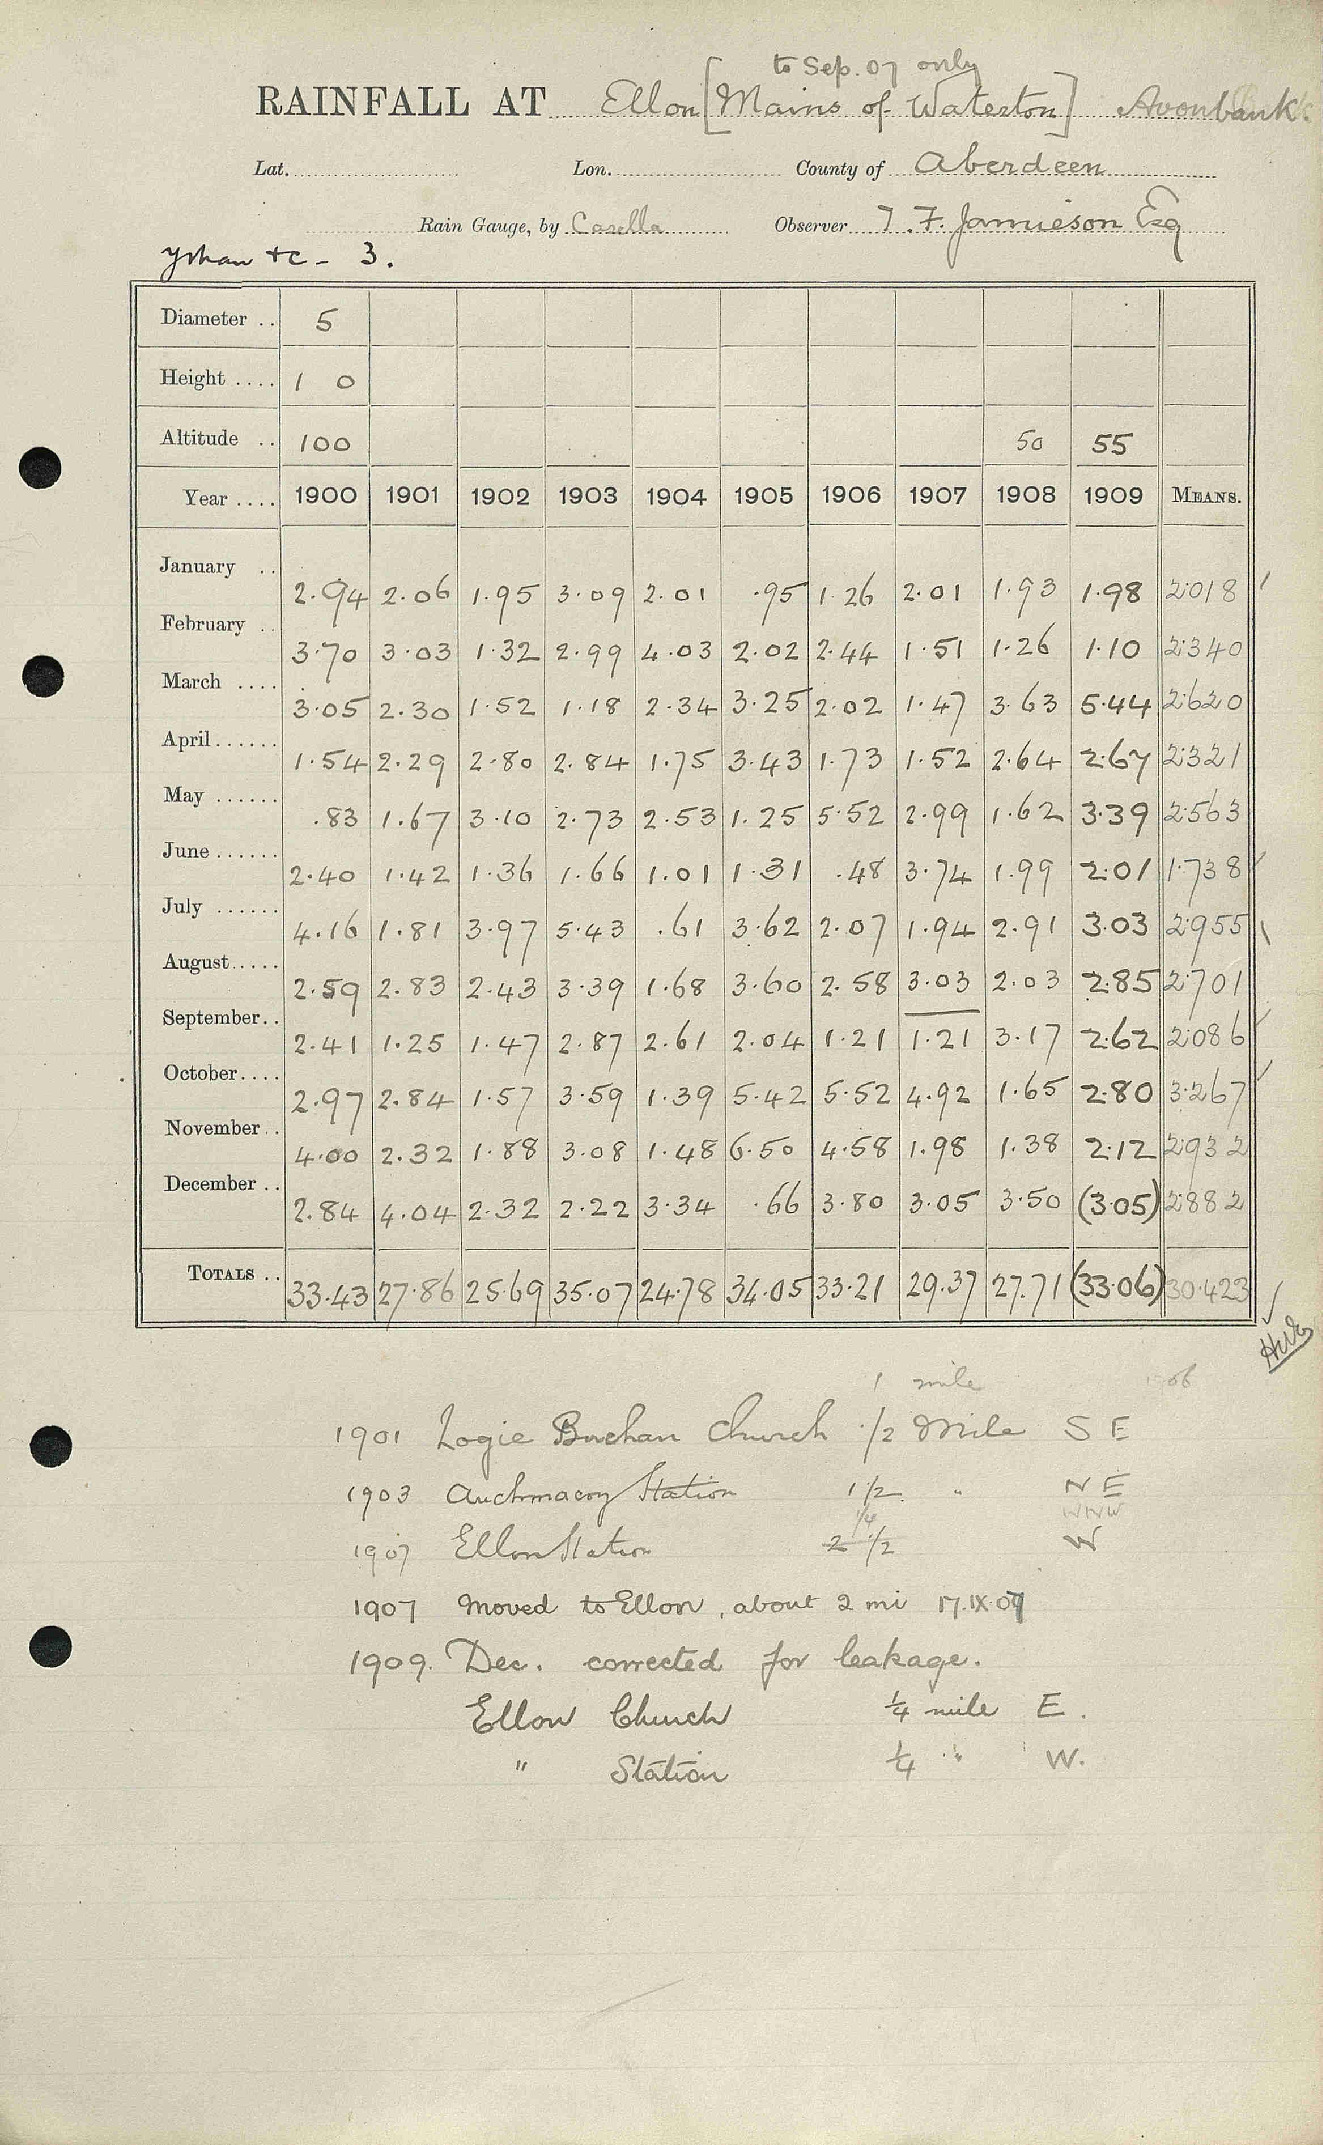 to Sep. 07 only
RAINFALL AT Ellon [Mains of Waterton] Avonbank
Lat. Lon. County of Aberdeen
Rain Gauge, by Casella Observer T. F. Jamieson Esq
Ythan &c - 3.
Diameter .. 5
Height .... 1 0
Altitude .. 100 50 55
Year .... 1900 1901 1902 1903 1904 1905 1906 1907 1908 1909 MEANS.
January .. 2.94 2.06 1.95 3.09 2.01 .95 1.26 2.01 1.93 1.98 2.018
February .. 3.70 3.03 1.32 2.99 4.03 2.02 2.44 1.51 1.26 1.10 2.340
March .... 3.05 2.30 1.52 1.18 2.34 3.25 2.02 1.47 3.63 5.44 2.620
April ...... 1.54 2.29 2.80 2.84 1.75 3.43 1.73 1.52 2.64 2.67 2.321
May ...... .83 1.67 3.10 2.73 2.53 1.25 5.52 2.99 1.62 3.39 2.563
June ...... 2.40 1.42 1.36 1.66 1.01 1.31 .48 3.74 1.99 2.01 1.738
July ...... 4.16 1.81 3.97 5.43 .61 3.62 2.07 1.94 2.91 3.03 2.955
August ..... 2.59 2.83 2.43 3.39 1.68 3.60 2.58 3.03 2.03 2.85 2.701
September .. 2.41 1.25 1.47 2.87 2.61 2.04 1.21 1.21 3.17 2.62 2.086
October .... 2.97 2.84 1.57 3.59 1.39 5.42 5.52 4.92 1.65 2.80 3.267
November .. 4.00 2.32 1.88 3.08 1.48 6.50 4.58 1.98 1.38 2.12 2.932
December .. 2.84 4.04 2.32 2.22 3.34 .66 3.80 3.05 3.50 (3.05) 2.882
TOTALS .. 33.43 27.86 25.69 35.07 24.78 34.05 33.21 29.37 27.71 (33.06) 30.423
1 mile
1901 Logie Buchan Church 1/2 Mile S E
1903 Auchmacoy Station 1 1/2 " N E
1/4 WNW
1907 Ellon Station 2 1/2 W
1907 Moved to Ellon, about 2 mi 17.IX.07
1909. Dec. corrected for leakage.
Ellon Church 1/4 mile E.
" Station 1/4 " W.